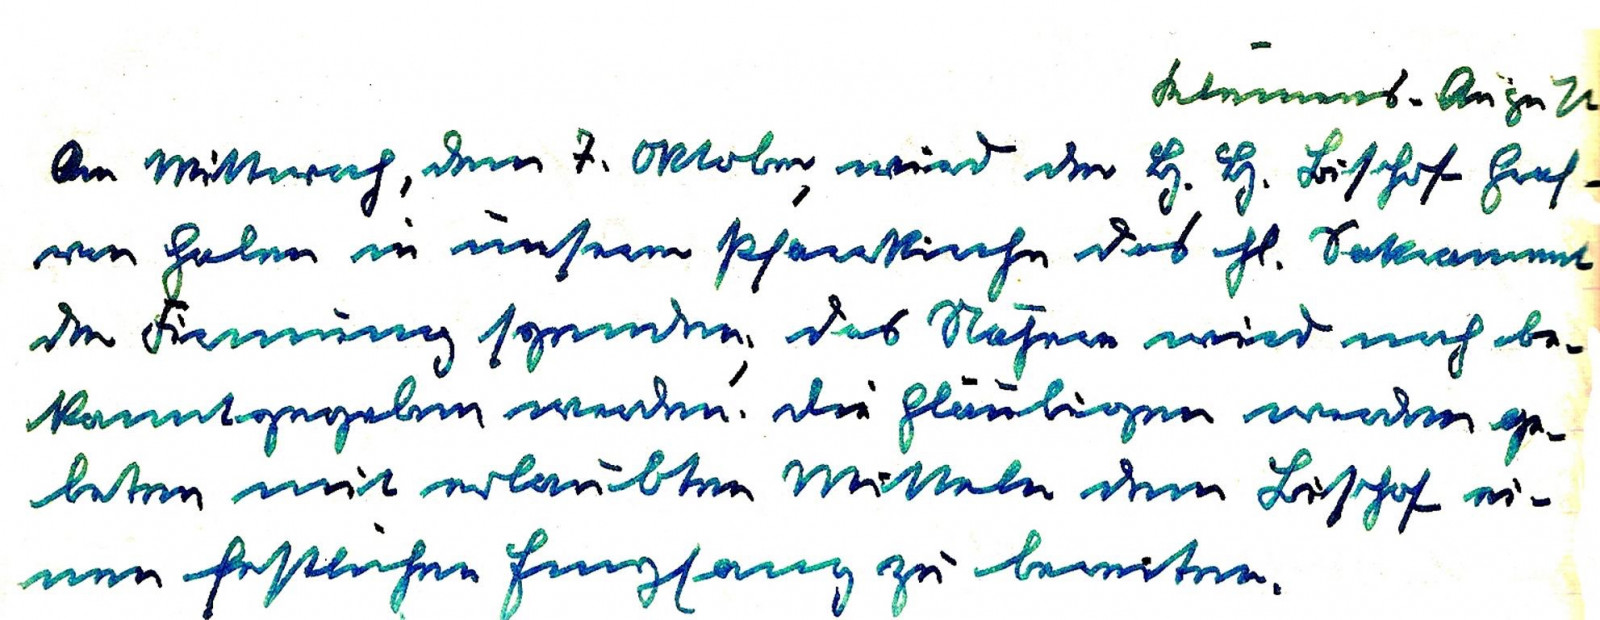 Klemens-Augu
Am Mittwoch, dem 7. Oktober, wird der H. H. Bischof Graf
von Galen in unserer Pfarrkirche das hl. Sakrament
der Firmung spenden; das Nähere wird noch be-
kanntgegeben werden. Die Gläubigen werden ge-
beten mit erlaubten Mitteln dem Bischof ei-
nen festlichen Empfang zu bereiten.